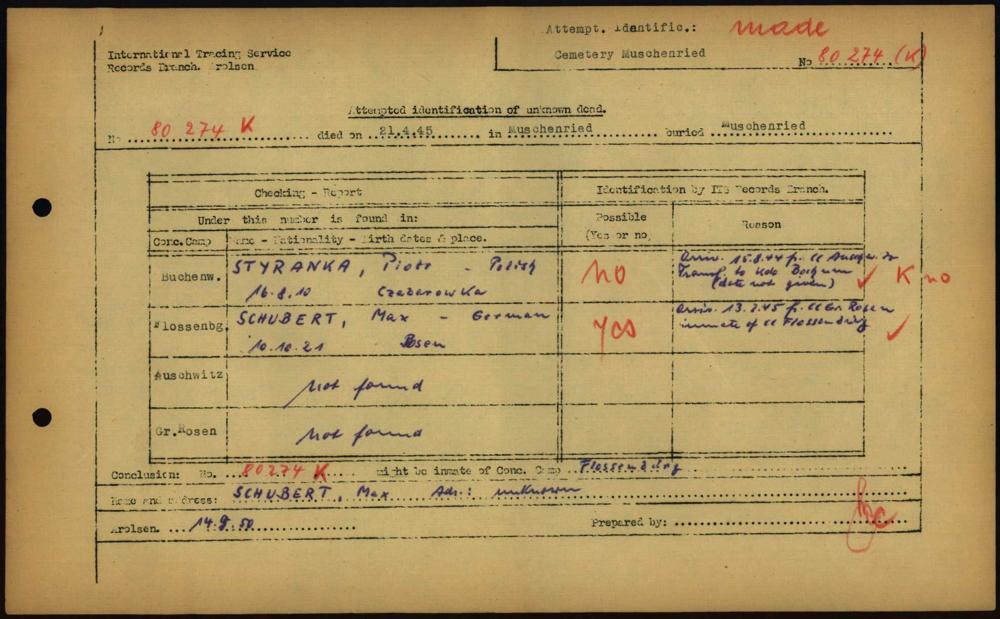 Attempt. Identific.: made
International Tracing Service
Records Branch. Arolsen
Cemetery Muschenried
No 80 274 (K)
Attempted identification of unknown dead.
No 80 274 K died on 21.4.45 in Muschenried buried Muschenried
Checking - Report
Identification by ITS Records Branch.
Under this number is found in:
Possible
(Yes or no)
Reason
Conc.Camp
Name - Nationality - Birth dates & place.
Buchenw.
STYRANKA, Piotr - Polish
16.8.10 Czazarowka
no
Arriv. 15.8.44 f. CC
Transf. to Kdo Bochum
(date not given)
K no
Flossenbg.
SCHUBERT, Max - German
10.10.21 Posen
yes
Arriv. 13.2.45 f. CC Gr. Rosen
inmate of CC Flossenbürg
Auschwitz
not found
Gr.Rosen
not found
Conclusion: No. 80274 K might be inmate of Conc. Camp Flossenbürg
Name and address: SCHUBERT, Max Adr.: unknown
Arolsen. 14.9.50
Prepared by: